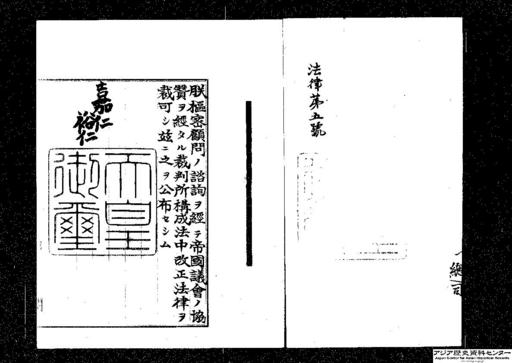 法律第五號
朕樞密顧問ノ諮詢ヲ經テ帝國議會ノ協
贊ヲ經タル裁判所構成法中改正法律ヲ
裁可シ茲ニ之ヲ公布セシム
嘉仁
裕仁
天皇
御璽
アジア歴史資料センター
Japan Center for Asian Historical Records